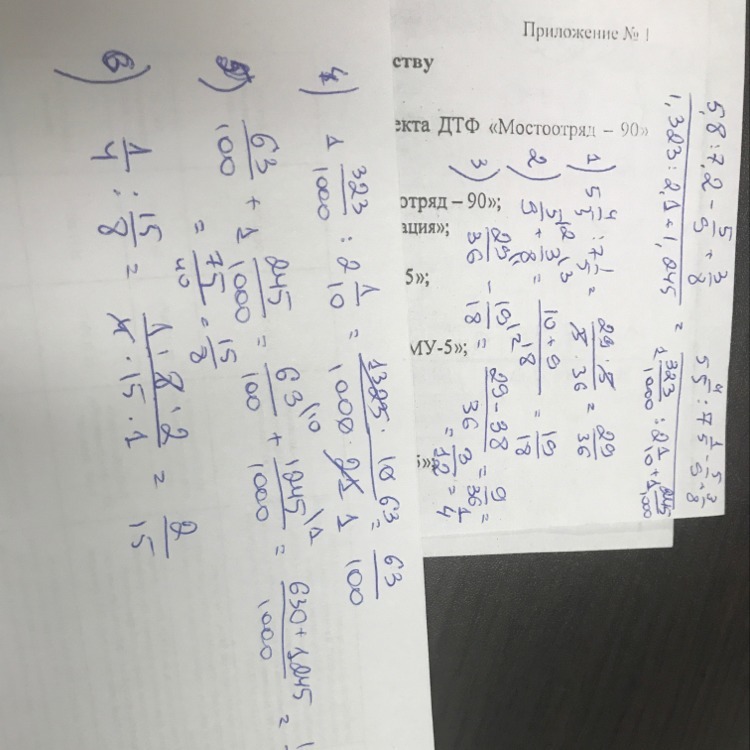 Приложение № 1
ству
екта ДТФ «Мостоотряд – 90»
отряд – 90»;
ация»;
5»;
МУ-5»;
5»;
5,8 : 7,2 - 5/9 + 3/8 / 1,323 : 2,1 + 1,245 = 5 4/5 : 7 1/5 - 5/9 + 3/8 / 1 323/1000 : 2 1/10 + 1 245/1000
1) 5 4/5 : 7 1/5 = 29 · 5 / 5 · 36 = 29/36
2) = 10 + 9 / 18 = 19/18
3) 29/36 - 19/18 = 29 - 38 / 36 = 9/36 = 3/12 = 1/4
4) 1 323/1000 : 2 1/10 = 1323 · 10 / 1000 · 21 = 63/100
5) 63/100 + 1 245/1000 = 63/100 + 1245/1000 = 630 + 1245 / 1000 =
= 75/40 = 15/8
6) 1/4 : 15/8 = 1 · 8 · 2 / 4 · 15 · 1 = 2/15